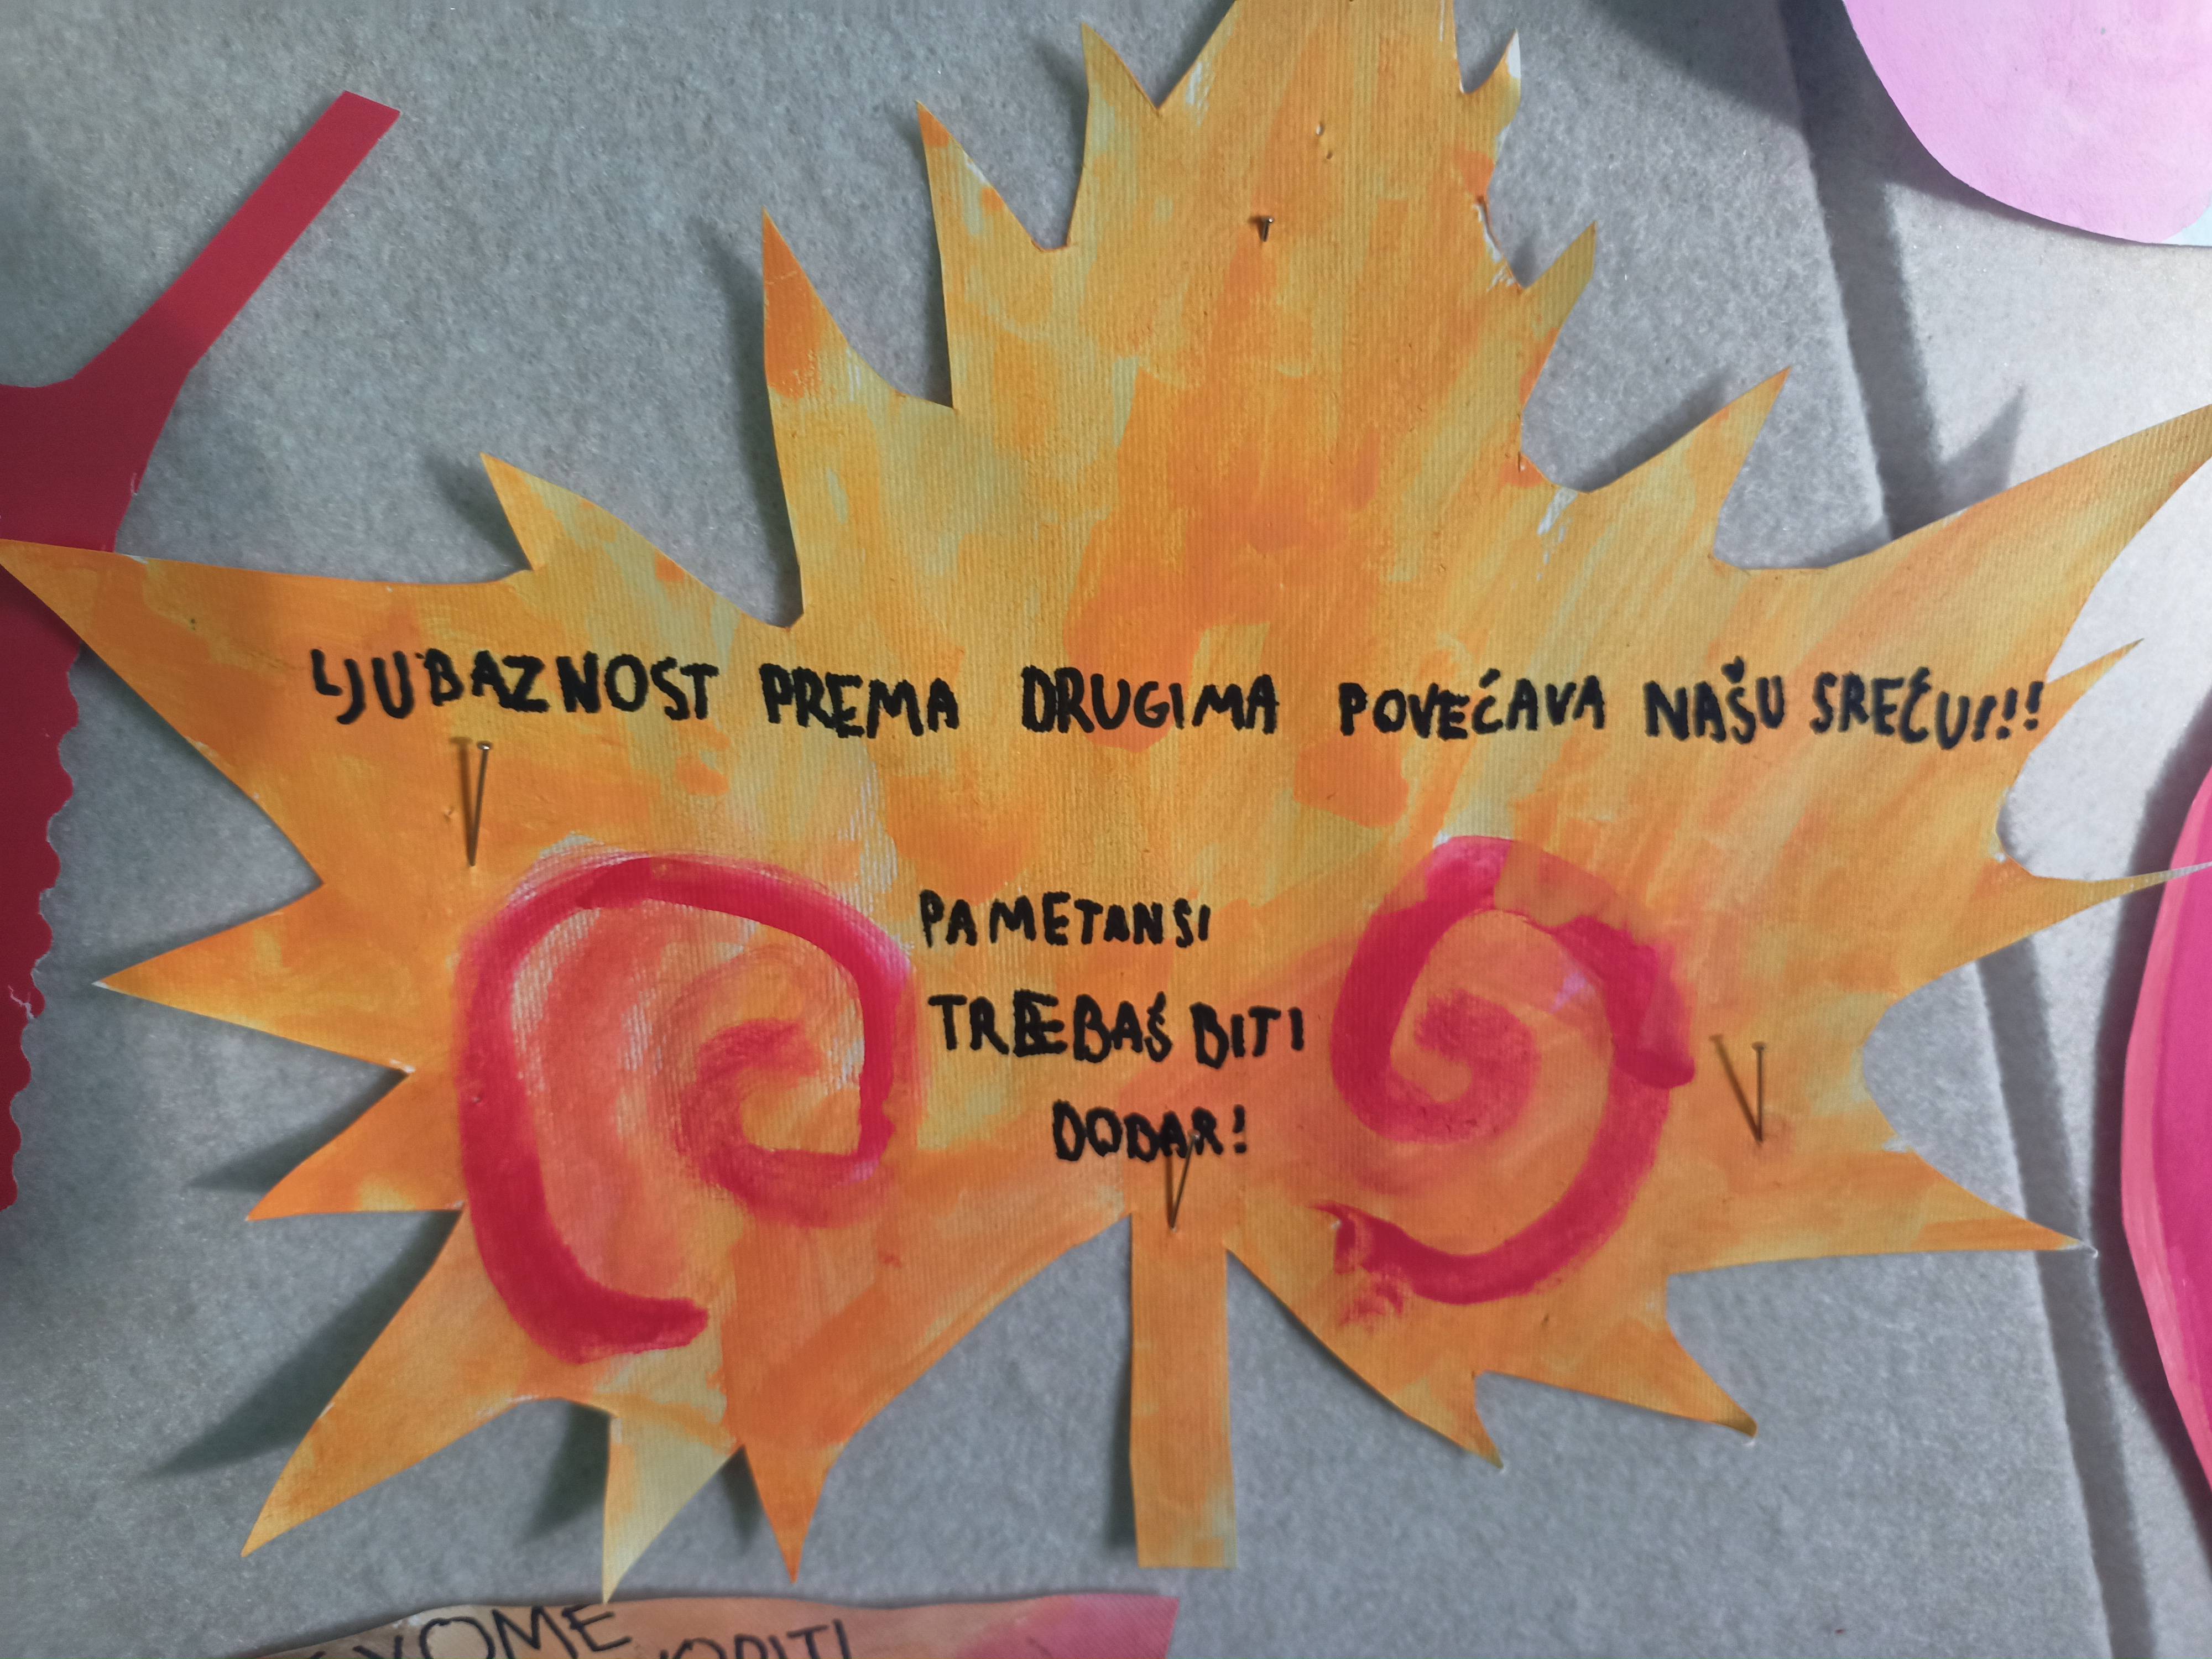 LJUBAZNOST PREMA DRUGIMA POVEĆAVA NAŠU SREĆU!!!
PAMETAN SI
TREBAŠ BITI
DODAR!